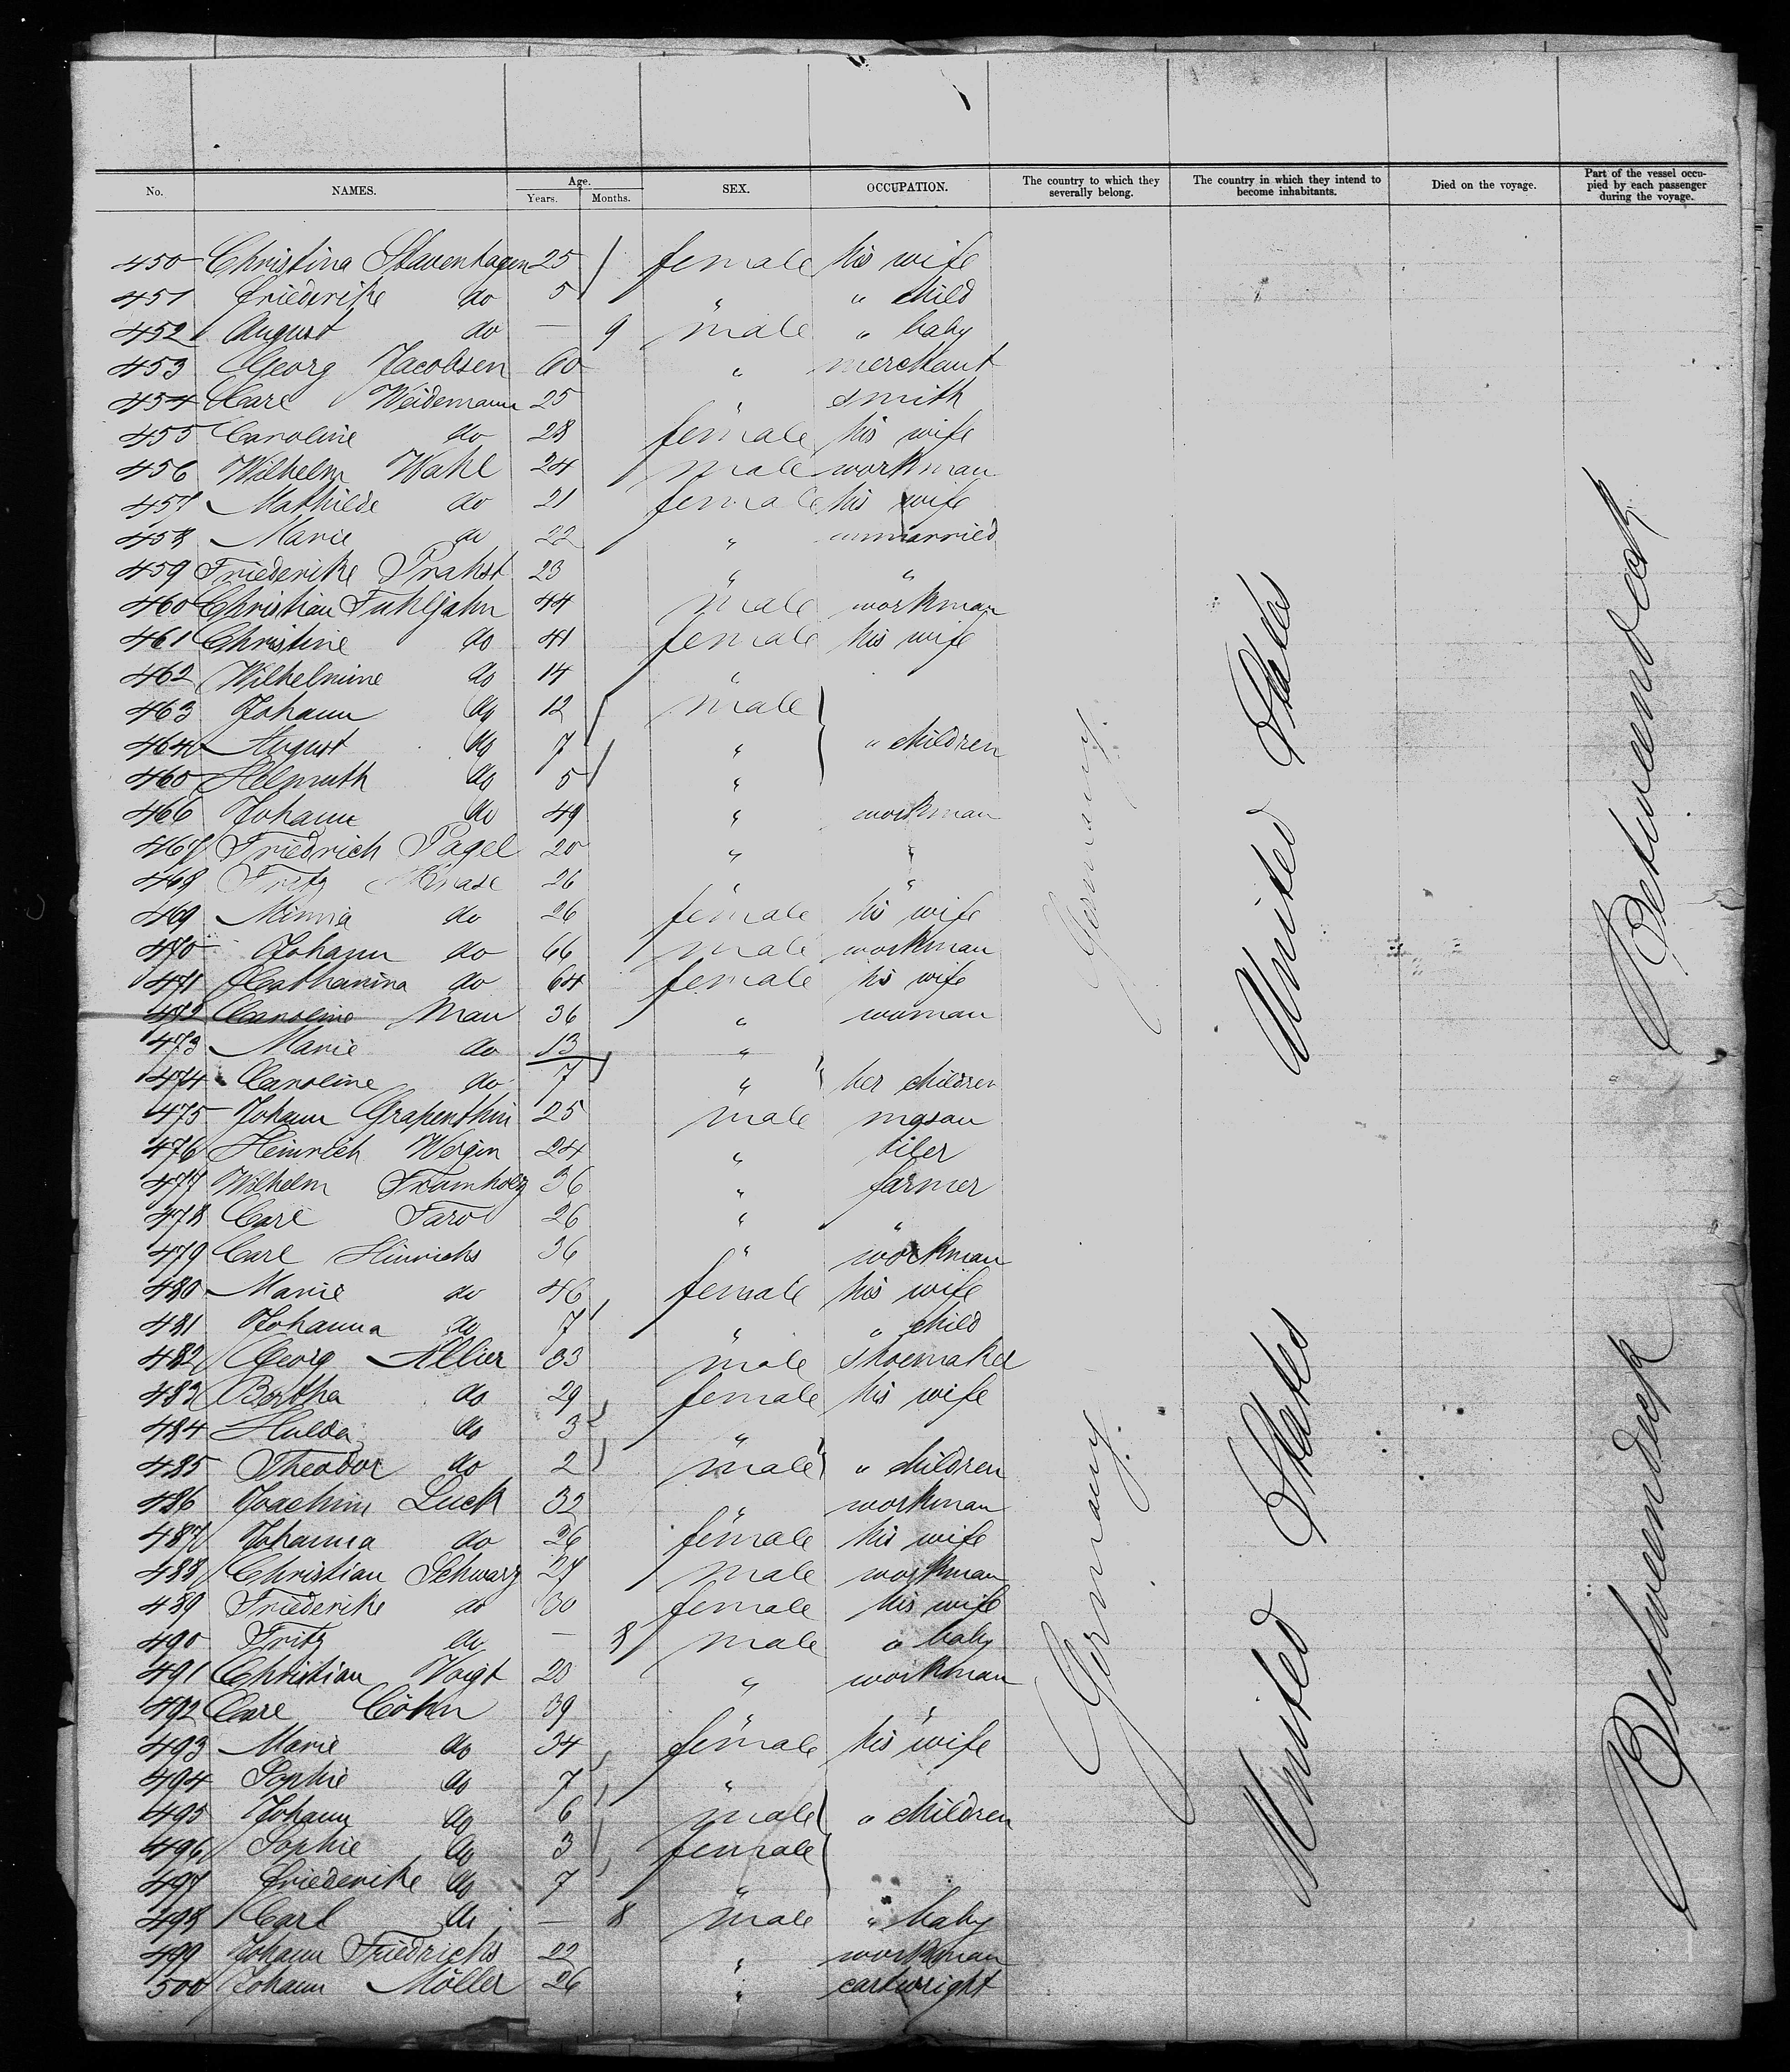 No. NAMES. Age. Years. Months. SEX. OCCUPATION. The country to which they severally belong. The country in which they intend to become inhabitants. Died on the voyage. Part of the vessel occupied by each passenger during the voyage.
450 Christina Stavenhagen 25 female his wife
451 Friederike do 5 " " child
452 August do — 9 male " baby
453 Georg Jacobsen 60 " merchant
454 Carl Weidemann 25 " smith
455 Caroline do 28 female his wife
456 Wilhelm Wahl 24 male workman
457 Mathilde do 21 female his wife
458 Marie do 22 " unmarried
459 Friederike Prahst 23 " "
460 Christian Fuhljahn 44 male workman
461 Christine do 41 female his wife
462 Wilhelmine do 14 "
463 Johann do 12 male
464 August do 7 " " children
465 Helmuth do 5 "
466 Johann do 49 " workman
467 Friedrich Pagel 20 " "
468 Fritz 26 " "
469 Minna do 26 female his wife
470 Johann do 66 male workman
471 Catharina do 64 female his wife
472 Caroline Mau 36 " woman
473 Marie do 13 "
474 Caroline do 7 " her children
475 Johann Grapenthin 25 male mason
476 Heinrich Wergin 24 " tiler
477 Wilhelm Tramholz 36 " farmer
478 Carl Faro 26 " "
479 Carl Hinrichs 36 " workman
480 Marie do 46 female his wife
481 Johanna do 7 " " child
482 Georg Allier 33 male shoemaker
483 Bertha do 29 female his wife
484 Hulda do 3 "
485 Theodor do 2 male " children
486 Joachim Luck 32 " workman
487 Johanna do 26 female his wife
488 Christian Schwarz 27 male workman
489 Friederike do 30 female his wife
490 Fritz do — 8 male " baby
491 Christian Voigt 23 " workman
492 Carl Cöhn 39 " "
493 Marie do 34 female his wife
494 Sophie do 7 "
495 Johann do 6 male " children
496 Sophie do 3 female
497 Friederike do 7 "
498 Carl do — 8 male " baby
499 Johann Friedrichs 22 " workman
500 Johann Möller 26 " cartwright
Germany.
Germany.
United States
United States
Betweendeck
Betweendeck